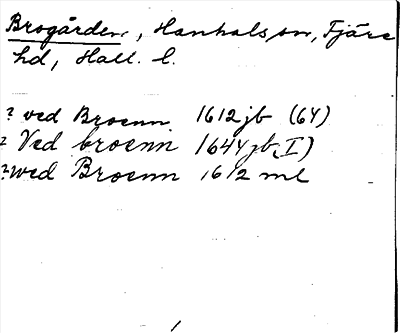 Brogården, Hanhals sn, Fjäre
hd, Hall. l.
? ved Broenn 1612 jb (64)
? Ved broenn 1644 jb, I)
? wed Broenn 1612 ml